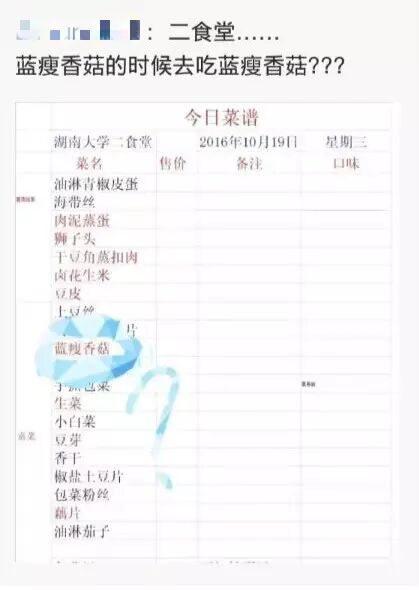 ：二食堂……
蓝瘦香菇的时候去吃蓝瘦香菇???
今日菜谱
湖南大学二食堂 2016年10月19日 星期三
菜名 售价 备注 口味
油淋青椒皮蛋
海带丝
肉泥蒸蛋
狮子头
干豆角蒸扣肉
卤花生米
豆皮
土豆丝
片
蓝瘦香菇
手撕包菜
生菜
小白菜
素菜
豆芽
香干
椒盐土豆片
包菜粉丝
藕片
油淋茄子